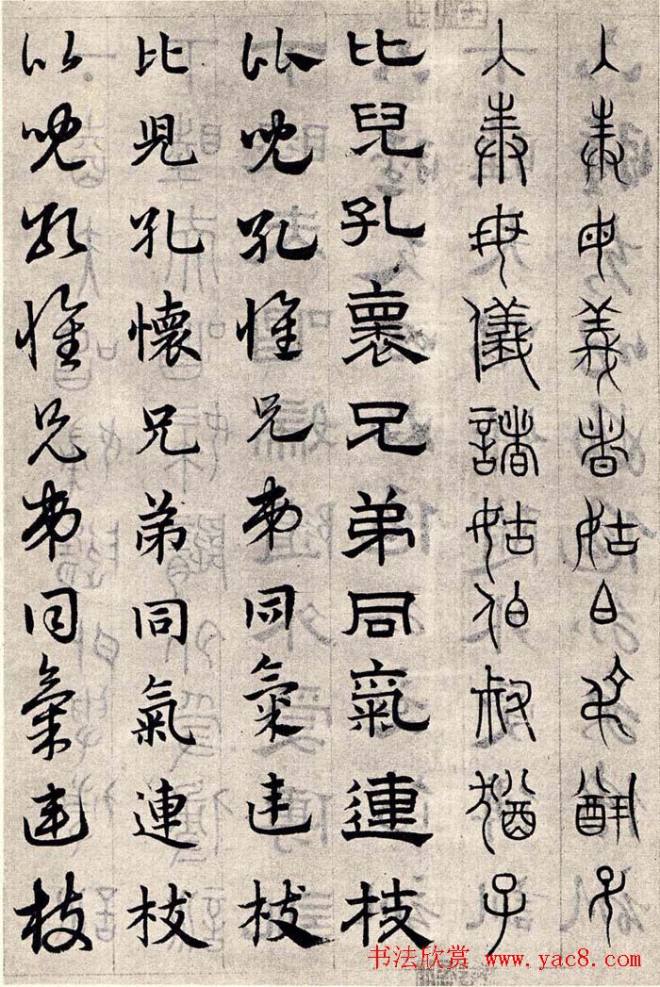 入奉母儀諸姑伯叔猶子
入奉母儀諸姑伯叔猶子
比兒孔褱兄弟同氣連枝
比兒孔懷兄弟同氣連枝
比兒孔懷兄弟同氣連枝
比兒孔懷兄弟同氣連枝
书法欣赏 www.yac8.com